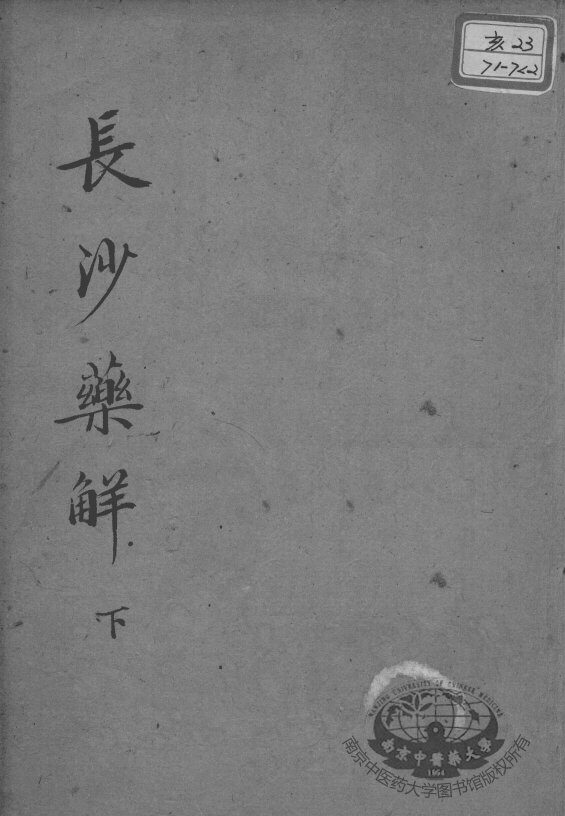 長沙藥觧
下
亥 23
71-72-2
NANJING UNIVERSITY OF CHINESE MEDICINE
南京中醫藥大學
1954
南京中医药大学图书馆版权所有